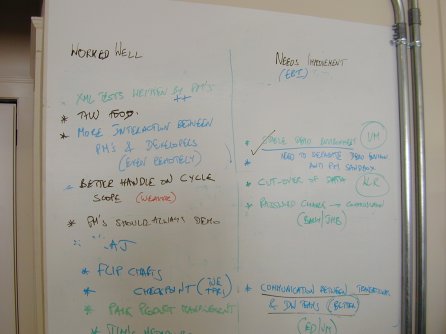 WORKED WELL
XML TESTS WRITTEN BY PM'S
++
* THU FOOD.
* MORE INTERACTION BETWEEN
PM'S & DEVELOPERS
(EVEN REMOTELY)
BETTER HANDLE ON CYCLE
SCOPE
* PM'S SHOULD ALWAYS DEMO
AJ
* FLIP CHARTS
* CHECKPOINT
* PAIR PROJECT MANAGEMENT
NEEDS IMPROVEMENT
(EBI)
DEMO ENVIRONMENT VM
* NEED TO SEPARATE DEMO
AND PM SANDBOX
* CUT-OVER OF DATA
* PASSWORD CHANGE → COMMUNICATION
* COMMUNICATION BETWEEN
& DW TEAMS (BETTER)